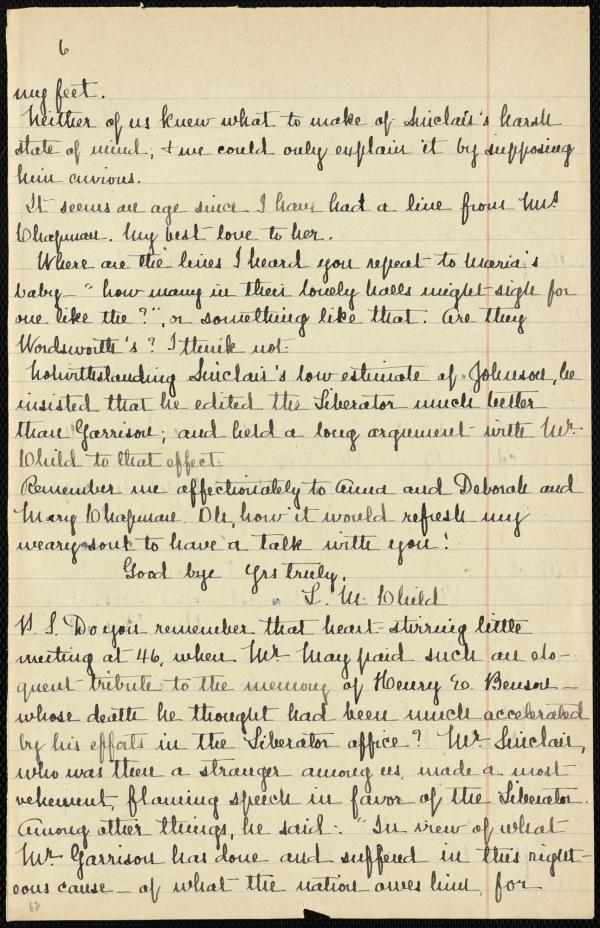 6
my feet.
Neither of us knew what to make of Sinclair's harsh
state of mind; + we could only explain it by supposing
him envious.
It seems an age since I have had a line from Mrs
Chapman. My best love to her.
Where are the lines I heard you repeat to Maria's
baby - "how many in their lonely halls might sigh for
one like the?", or something like that. Are they
Wordsworth's? I think not.
Notwithstanding Sinclair's low estimate of Johnson, he
insisted that he edited the Liberator much better
than Garrison; and held a long argument with Mr.
Child to that effect.
Remember me affectionately to Anna and Deborah and
Mary Chapman. Oh, how it would refresh my
weary soul to have a talk with you!
Good bye Yrs truly,
L. M. Child
P. S. Do you remember that heart-stirring little
meeting at 46, when Mr May paid such an elo-
quent tribute to the memory of Henry E. Benson -
whose death he thought had been much accelerated
by his efforts in the Liberator office? Mr Sinclair,
who was then a stranger among us, made a most
vehement, flaming speech in favor of the Liberator.
Among other things, he said: "In view of what
Mr. Garrison has done and suffered in this right-
eous cause - of what the nation owes him, for
62